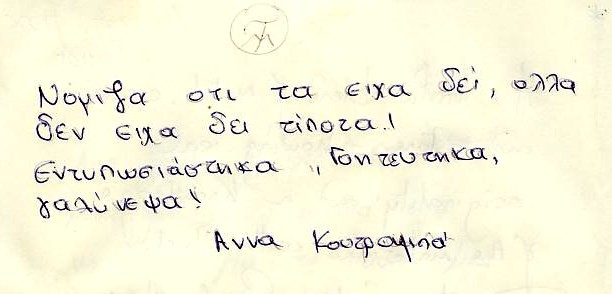 Νομιζα οτι τα ειχα δεί, αλλα
δεν ειχα δει τίποτα!
Εντυπωσιάστηκα, Γοητευτηκα,
γαλύνεψα!
Αννα